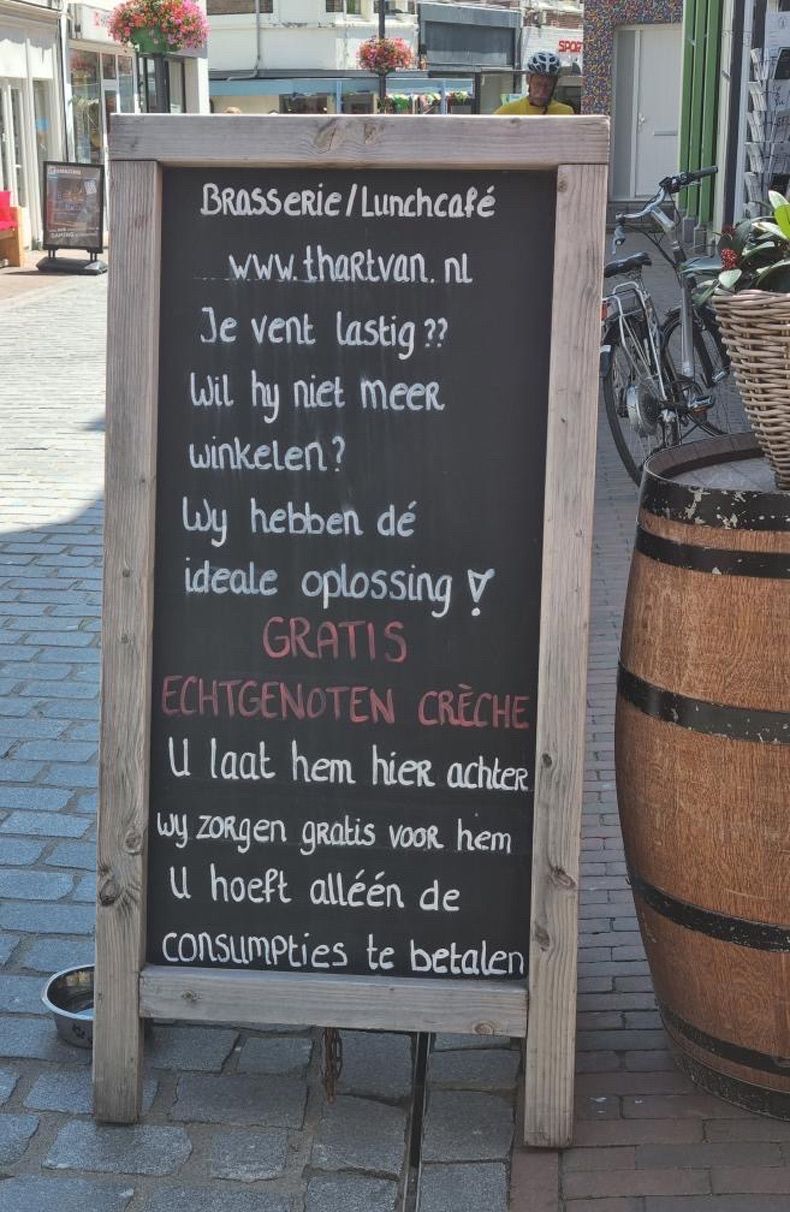 Brasserie/Lunchcafé
www.thartvan.nl
Je vent lastig??
Wil hy niet meer
winkelen?
Wy hebben dé
ideale oplossing!
GRATIS
ECHTGENOTEN CRÈCHE
U laat hem hier achter
wy zorgen gratis voor hem
U hoeft alléén de
consumpties te betalen
SPOR